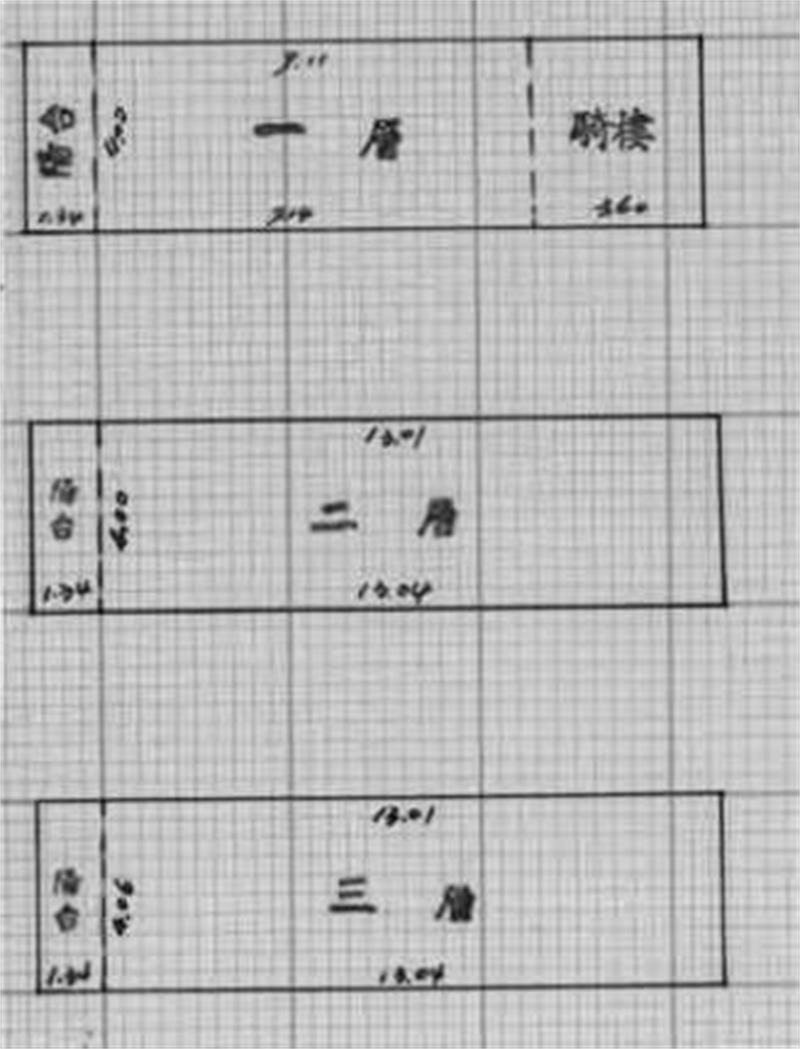 一層
騎樓
陽台
1.34
3.60
13.01
二層
陽台
4.00
1.34
13.04
13.01
三層
陽台
4.06
1.34
13.04